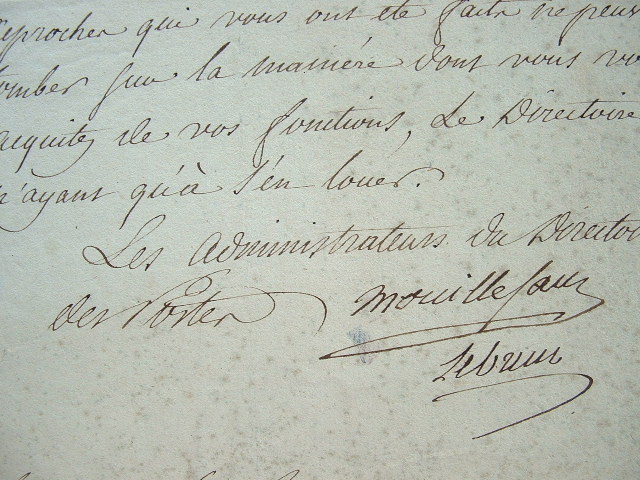 reproches qui vous ont été faits ne peuv
tomber sur la manière dont vous vo
acquitez de vos fonctions, Le Directoire
n'ayant qu'à s'en louer.
Les administrateurs du Directoi
des Postes
Mouillesaux
Lebrun